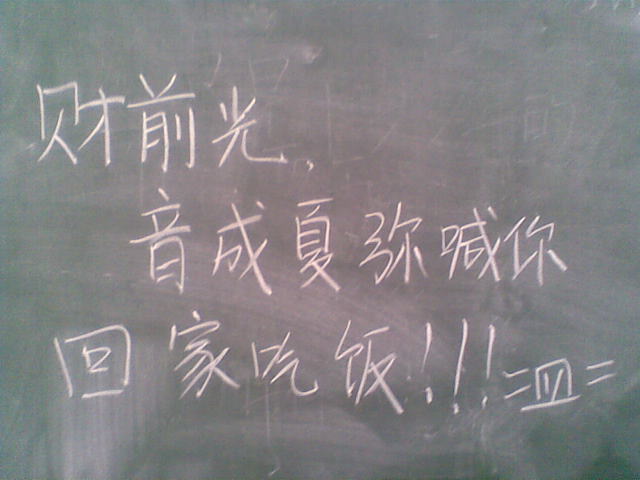 财前光，
音成夏弥喊你
回家吃饭!!!=皿=